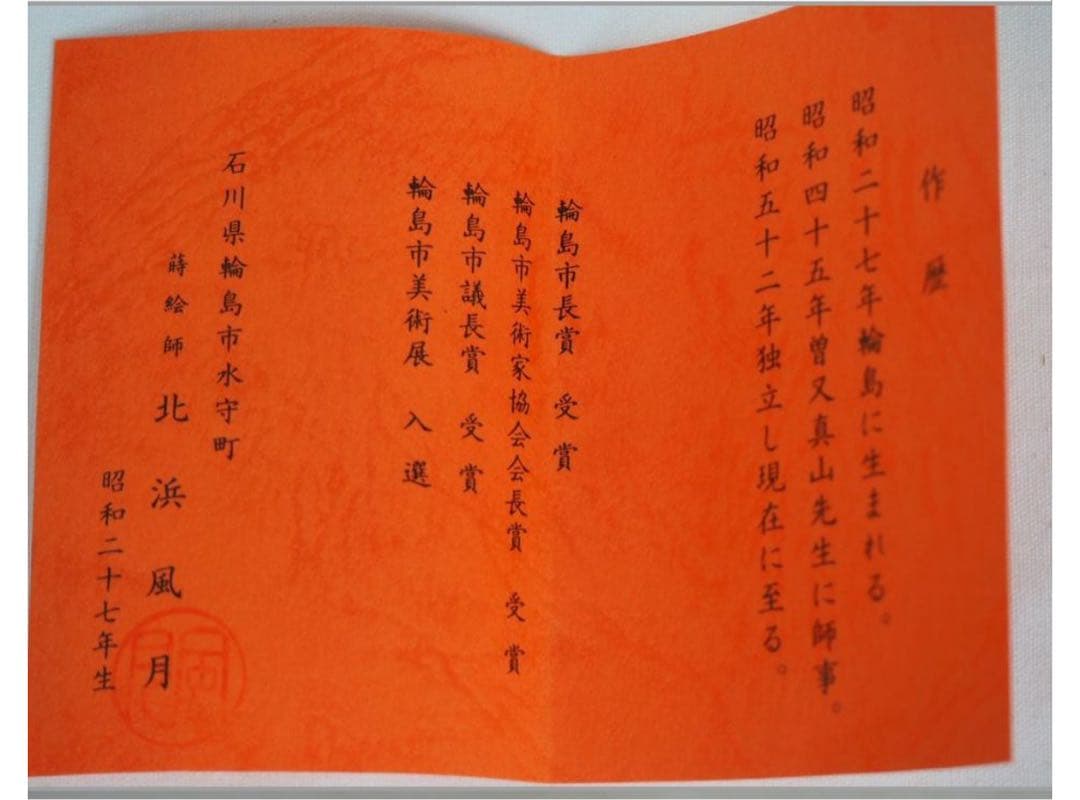 作歴
昭和二十七年輪島に生まれる。
昭和四十五年曽又真山先生に師事。
昭和五十二年独立し現在に至る。
輪島市長賞 受賞
輪島市美術家協会会長賞 受賞
輪島市議長賞 受賞
輪島市美術展 入選
石川県輪島市水守町
蒔絵師 北浜風月
昭和二十七年生